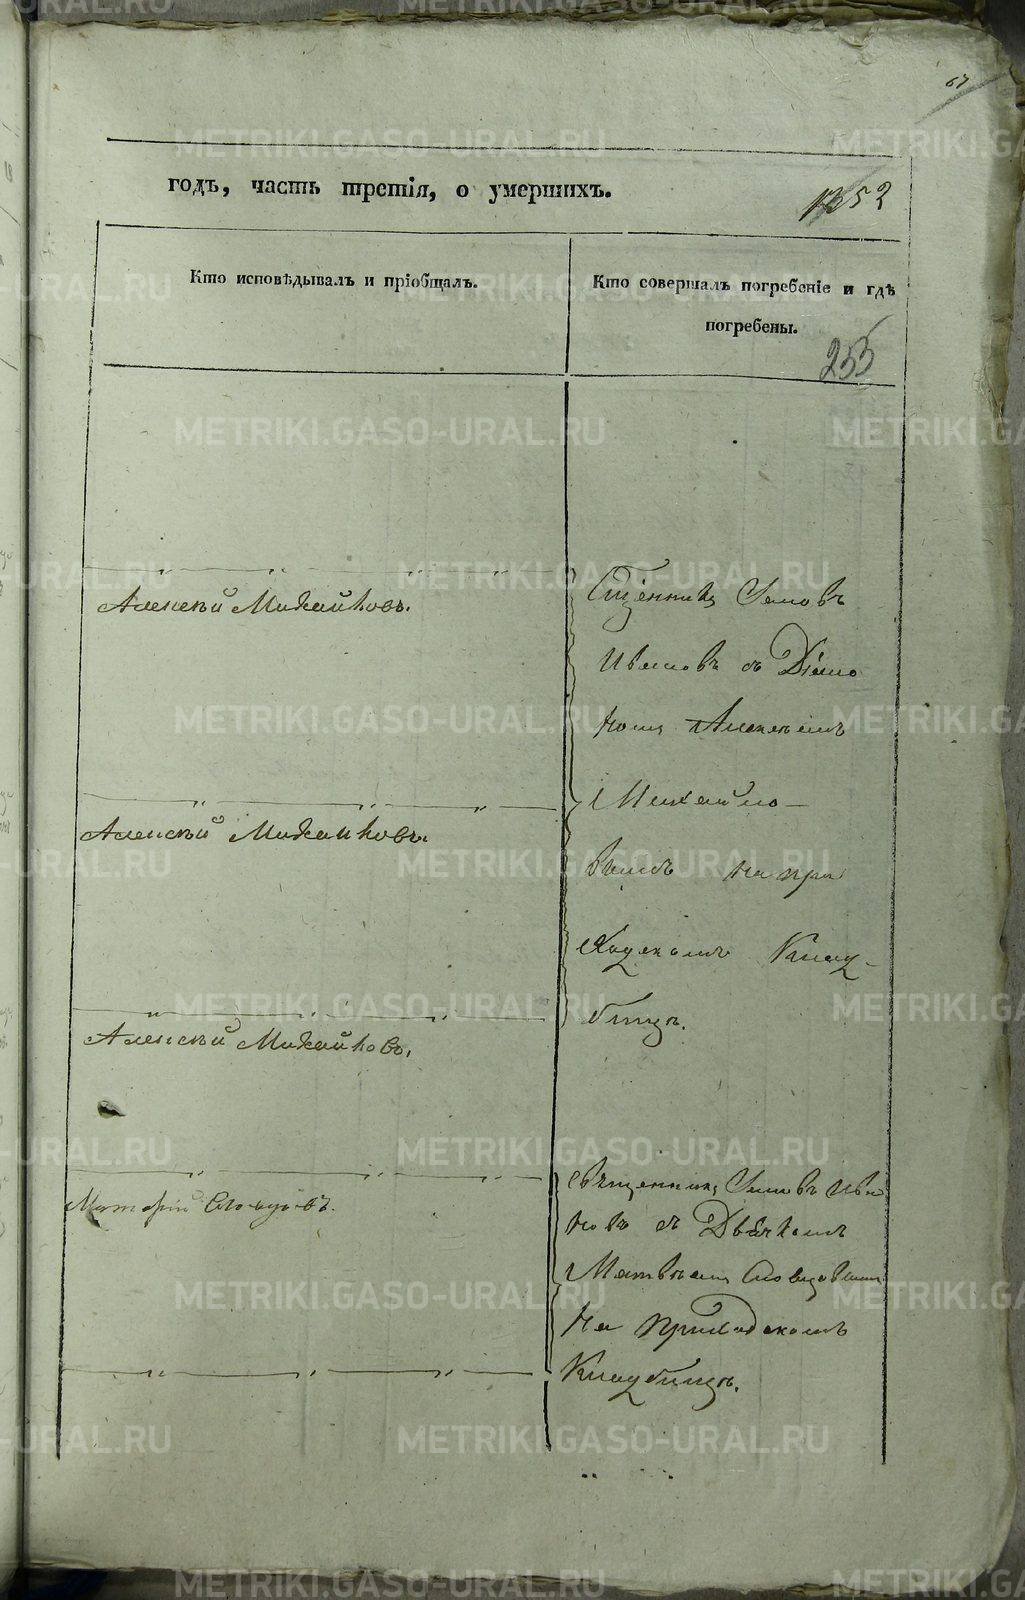 67
годъ, часть третія, о умершихъ.
1252
Кто исповѣдывалъ и пріобщалъ.
Кто совершалъ погребеніе и гдѣ
погребены.
255
Алексѣй Михайловъ.
Сщенникъ
Ивановъ съ Діако
номъ Алексѣемъ
Михайло-
вымъ на при
ходскомъ Клад-
бищѣ.
Алексѣй Михайловъ.
Алексѣй Михайловъ.
Священникъ Ива
новъ съ Дьячкомъ
Матвѣемъ
на приходскомъ
Кладбищѣ.
METRIKI.GASO-URAL.RU